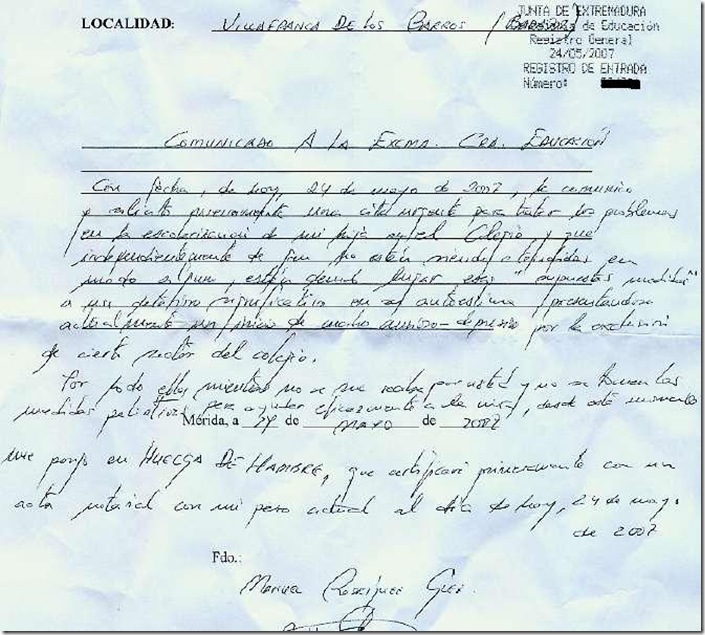 LOCALIDAD: VILLAFRANCA DE LOS BARROS (BADAJOZ)
JUNTA DE EXTREMADURA
de Educación
Registro General
24/05/2007
REGISTRO DE ENTRADA
Número:
COMUNICADO A LA EXCMA. CRA. EDUCACIÓN
Con fecha, de hoy, 24 de mayo de 2007, le comunico
y solicito previamente una cita urgente para tratar los problemas
en la escolarización de mi hija en el Colegio y que
independientemente de que no están siendo atendidas en
modo alguno, están dando lugar esas "supuestas medidas"
a un deterioro significativo en su autoestima, presentando
actualmente un inicio de ansioso-depresivo por la exclusión
de cierto sector del colegio.
Por todo ello, mientras no se me reciba por usted y no se tomen las
medidas paliativas para ayudar eficazmente a la niña, desde este momento
Mérida, a 24 de MAYO de 2007
me pongo en HUELGA DE HAMBRE, que certificaré previamente con un
acta notarial con mi peso actual al día de hoy, 24 de mayo
de 2007
Fdo.:
Manuel Rodríguez